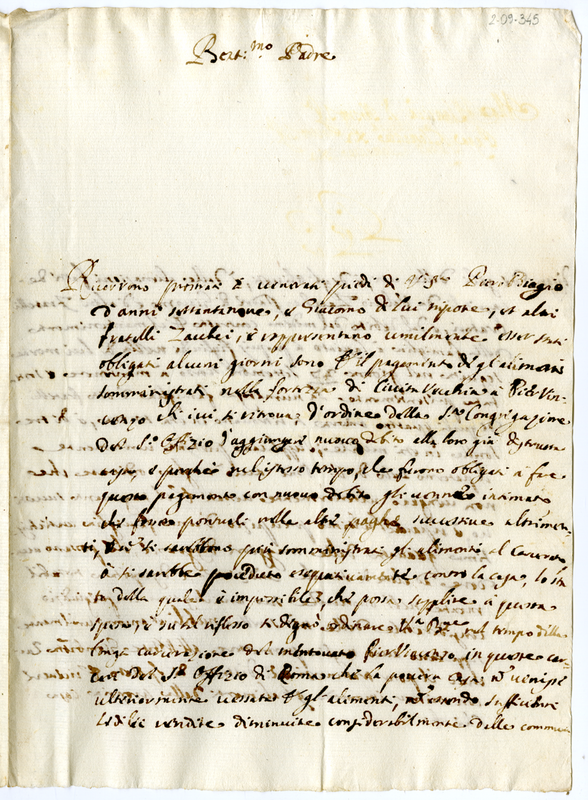 2-09-345
Beat:mo Padre
Ricorrono prostrati à venerati piedi di V. Stà Pietro Biagio
d'anni sessantinove, e Giacomo di lui nipote, et altri
fratelli Zacchei, e rappresentano umilmente esser stati
obligati alcuni giorni sono per il pagamento degl'alimenti
somministrati nella fortezza di Civita Vecchia à Pietro Vin-
cenzo che ivi si ritrova, d'ordine della S. Congregazione
del S. Offizio d'aggiungere nuovo debito alla loro già
casa, e perche nel istesso tempo, che furono obligati a fare
questo pagamento con nuovo debito gli venne intimato
che fossero pontuali nelle altre paghe successive altrimen-
ti, non si sarebbono più somministrati gl'alimenti al Carcerato
ò si sarebbe proceduto esequtivamente contro la casa, lo sta-
to della quale è impossibile, che possa supplire a questa
spesa, e su tal riflesso si degnò ordinare nel tempo della
longa carcerazione del mentovato Pietro Vincenzo in queste car-
ceri del S. Offizio di Roma che la povera casa non venisse
ulteriormente vessata per gl'alimenti, non essendo sufficienti
le di lei rendite diminuite considerabilmente dalle commu-